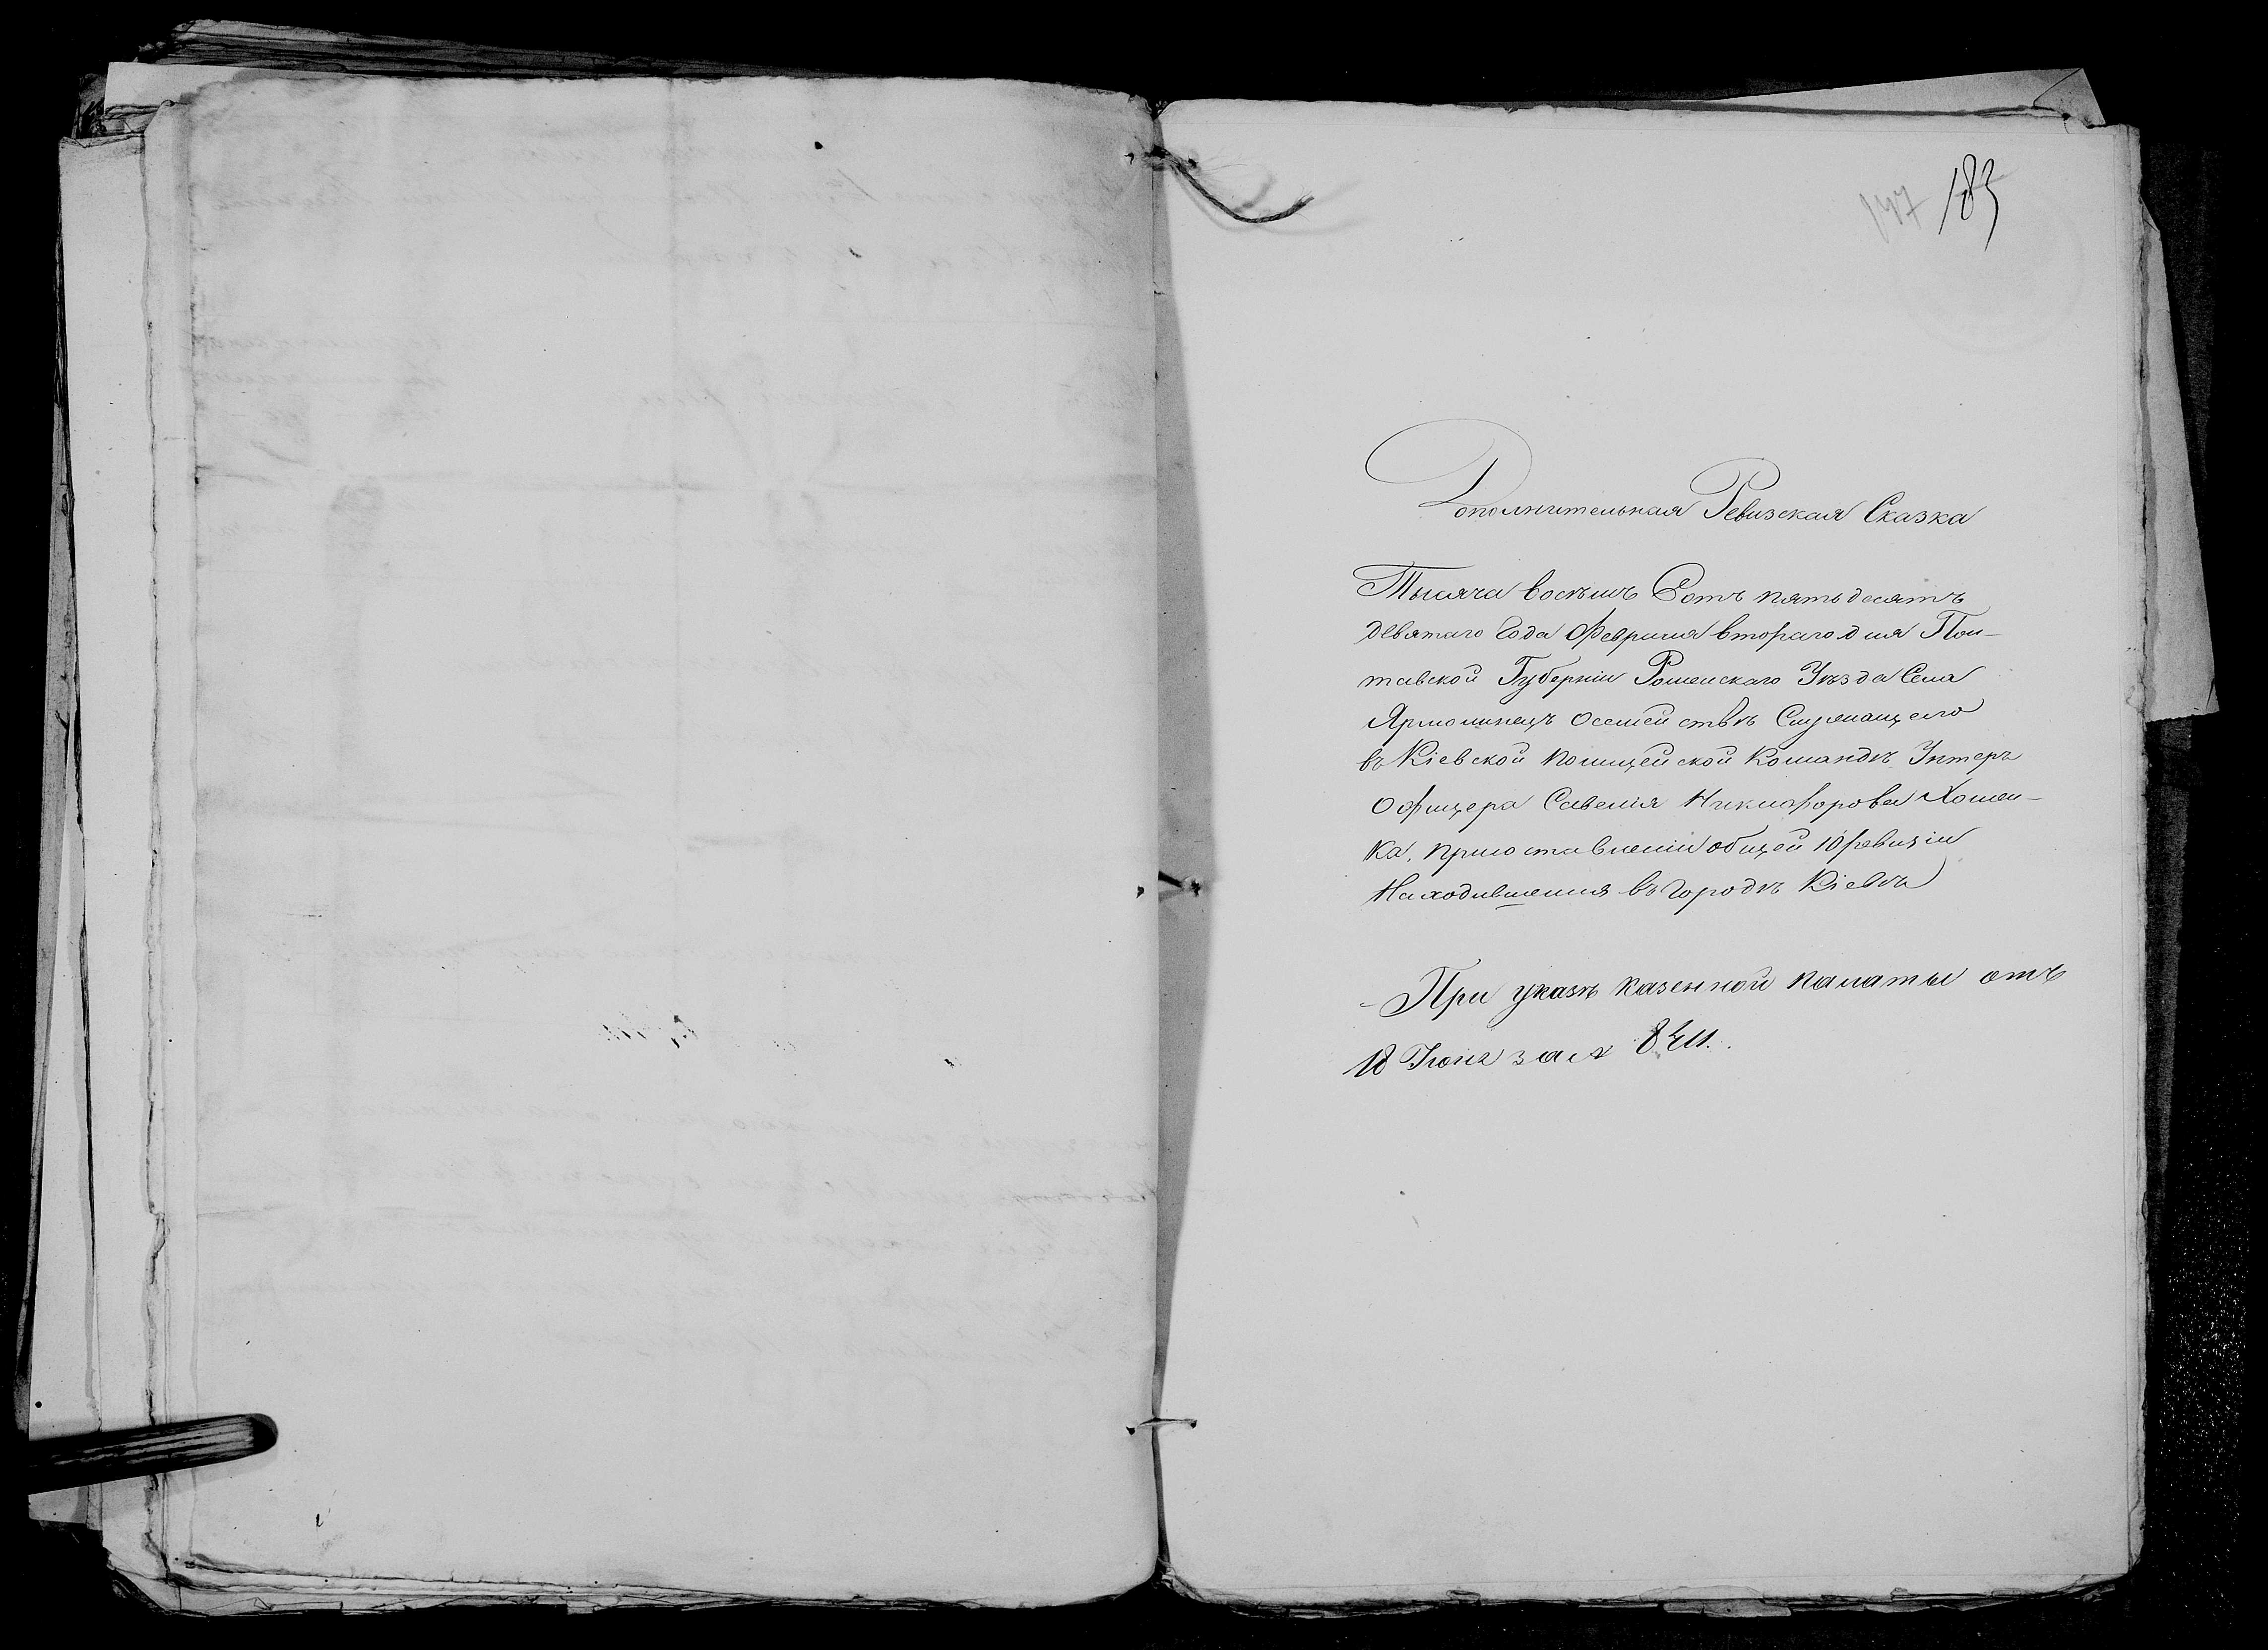 147 183
Дополнительная Ревизская Сказка
Тысяча восѣмь Сотъ пятьдесятъ
девятаго Года Февраля втораго дня Пол-
тавской Губерніи Роменскаго Уѣзда Села
Ярмолинецъ осемействѣ Служащего
въ Кіевской полицейской Командѣ Унтеръ
Офицера Савелія Никифорова Хомен-
ка, приоставленіи общей 10 ревизіи
Находившемся въ Городѣ Кіевѣ
При указѣ казенной палаты отъ
18 Іюня за №